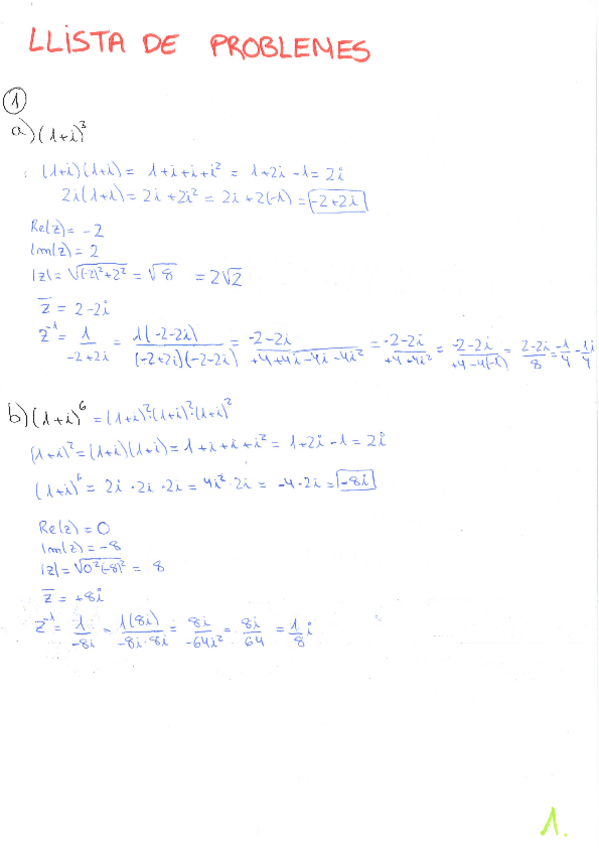 LLISTA DE PROBLEMES
①
a) (1+i)³
(1+i)(1+i) = 1+i+i+i² = 1+2i-1 = 2i
2i(1+i) = 2i+2i² = 2i+2(-1) = -2+2i
Re(z) = -2
Im(z) = 2
|z| = √((-2)²+2²) = √8 = 2√2
z̄ = 2-2i
z⁻¹ = 1/(-2+2i) = 1(-2-2i)/((-2+2i)(-2-2i)) = (-2-2i)/(+4+4i-4i-4i²) = (-2-2i)/(+4-4i²) = (-2-2i)/(+4-4(-1)) = (2-2i)/8 = -1/4 - 1i/4
b) (1+i)⁶ = (1+i)²·(1+i)²·(1+i)²
(1+i)² = (1+i)(1+i) = 1+i+i+i² = 1+2i-1 = 2i
(1+i)⁶ = 2i·2i·2i = 4i²·2i = -4·2i = -8i
Re(z) = 0
Im(z) = -8
|z| = √(0²(-8)²) = 8
z̄ = +8i
z⁻¹ = 1/(-8i) = 1(8i)/(-8i·8i) = 8i/(-64i²) = 8i/64 = 1/8 i
1.